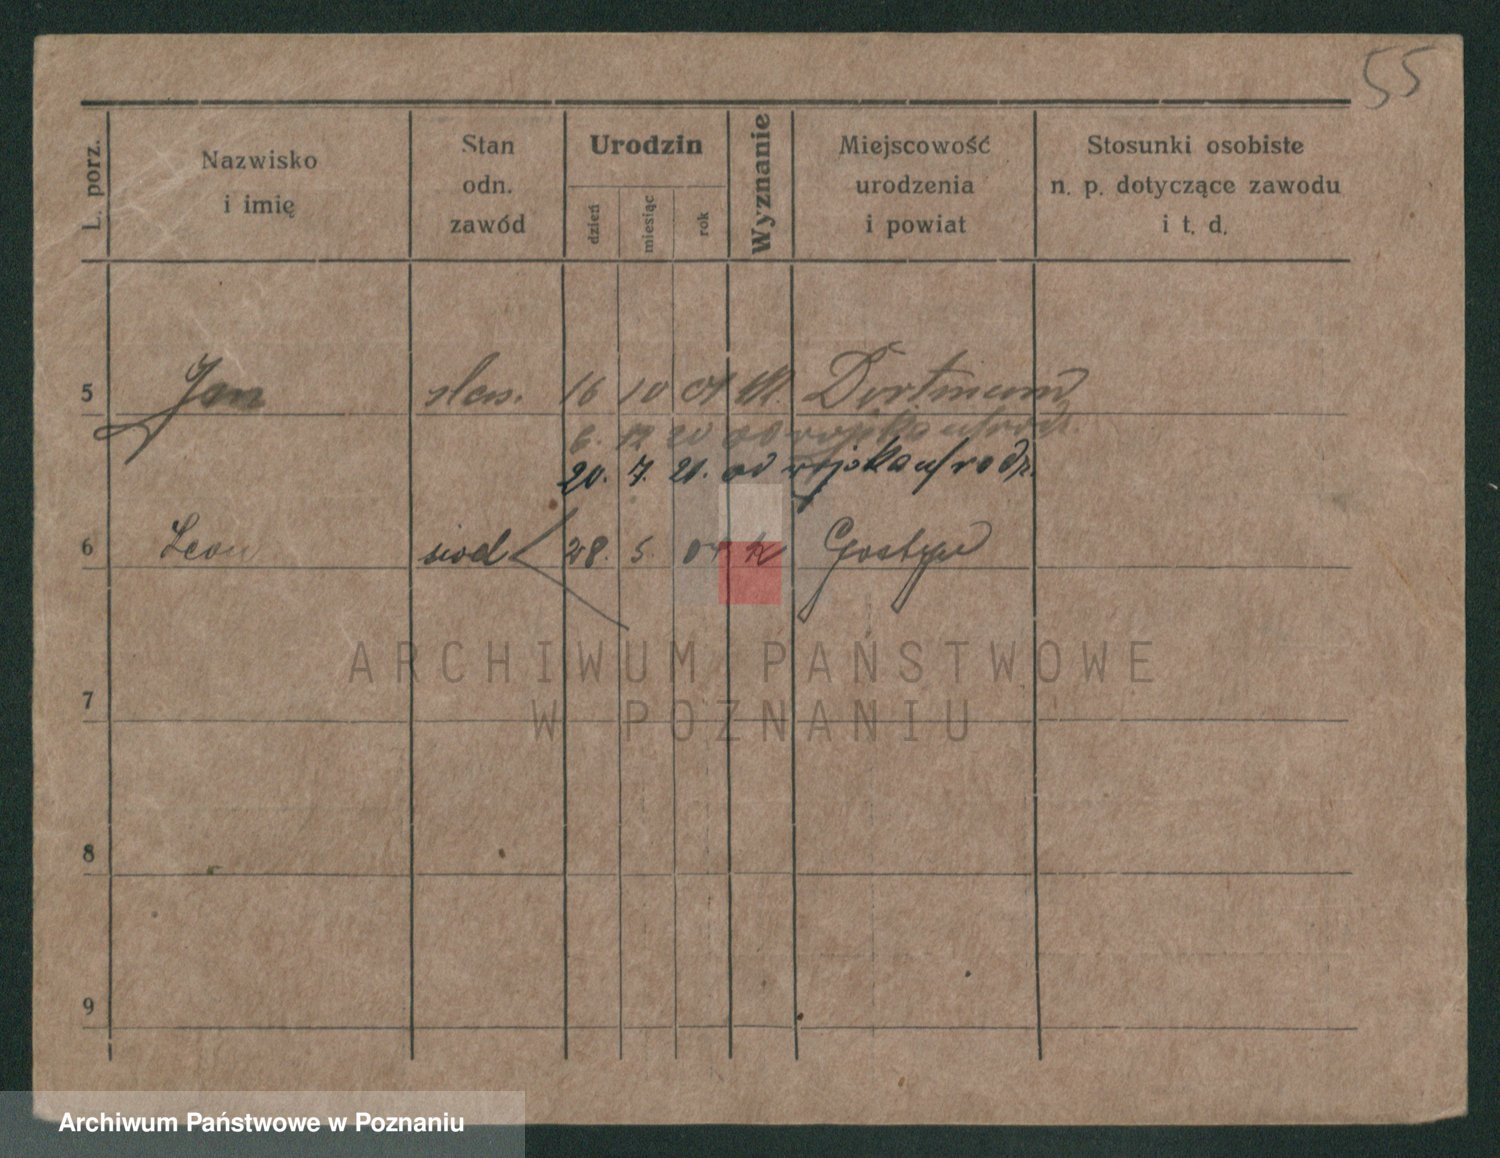 55
L. porz.
Nazwisko
i imię
Stan
odn.
zawód
Urodzin
dzień
miesiąc
rok
Wyznanie
Miejscowość
urodzenia
i powiat
Stosunki osobiste
n. p. dotyczące zawodu
i t. d.
5 Jan 16 10 01 kt. Dortmund
6. 20 od wojska
20. 7. 21. od wojska
6 Leon 28. 5. 04 k Gostyń
7
8
9
ARCHIWUM PAŃSTWOWE
W POZNANIU
Archiwum Państwowe w Poznaniu